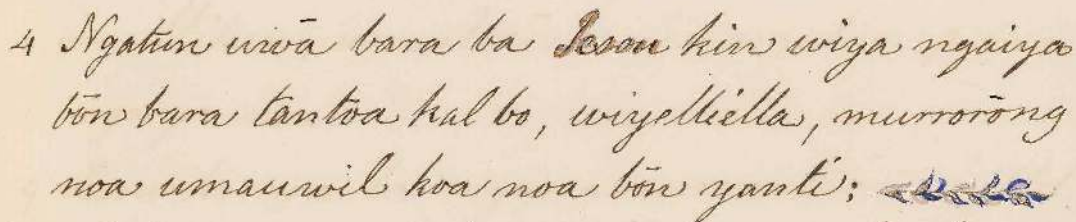 4 Ngatun uwā bara ba Jesou kin wiya ngaiya
bōn bara tantōa kal bo, wiyelliella, murrorōng
noa umauwil koa noa bōn yanti;